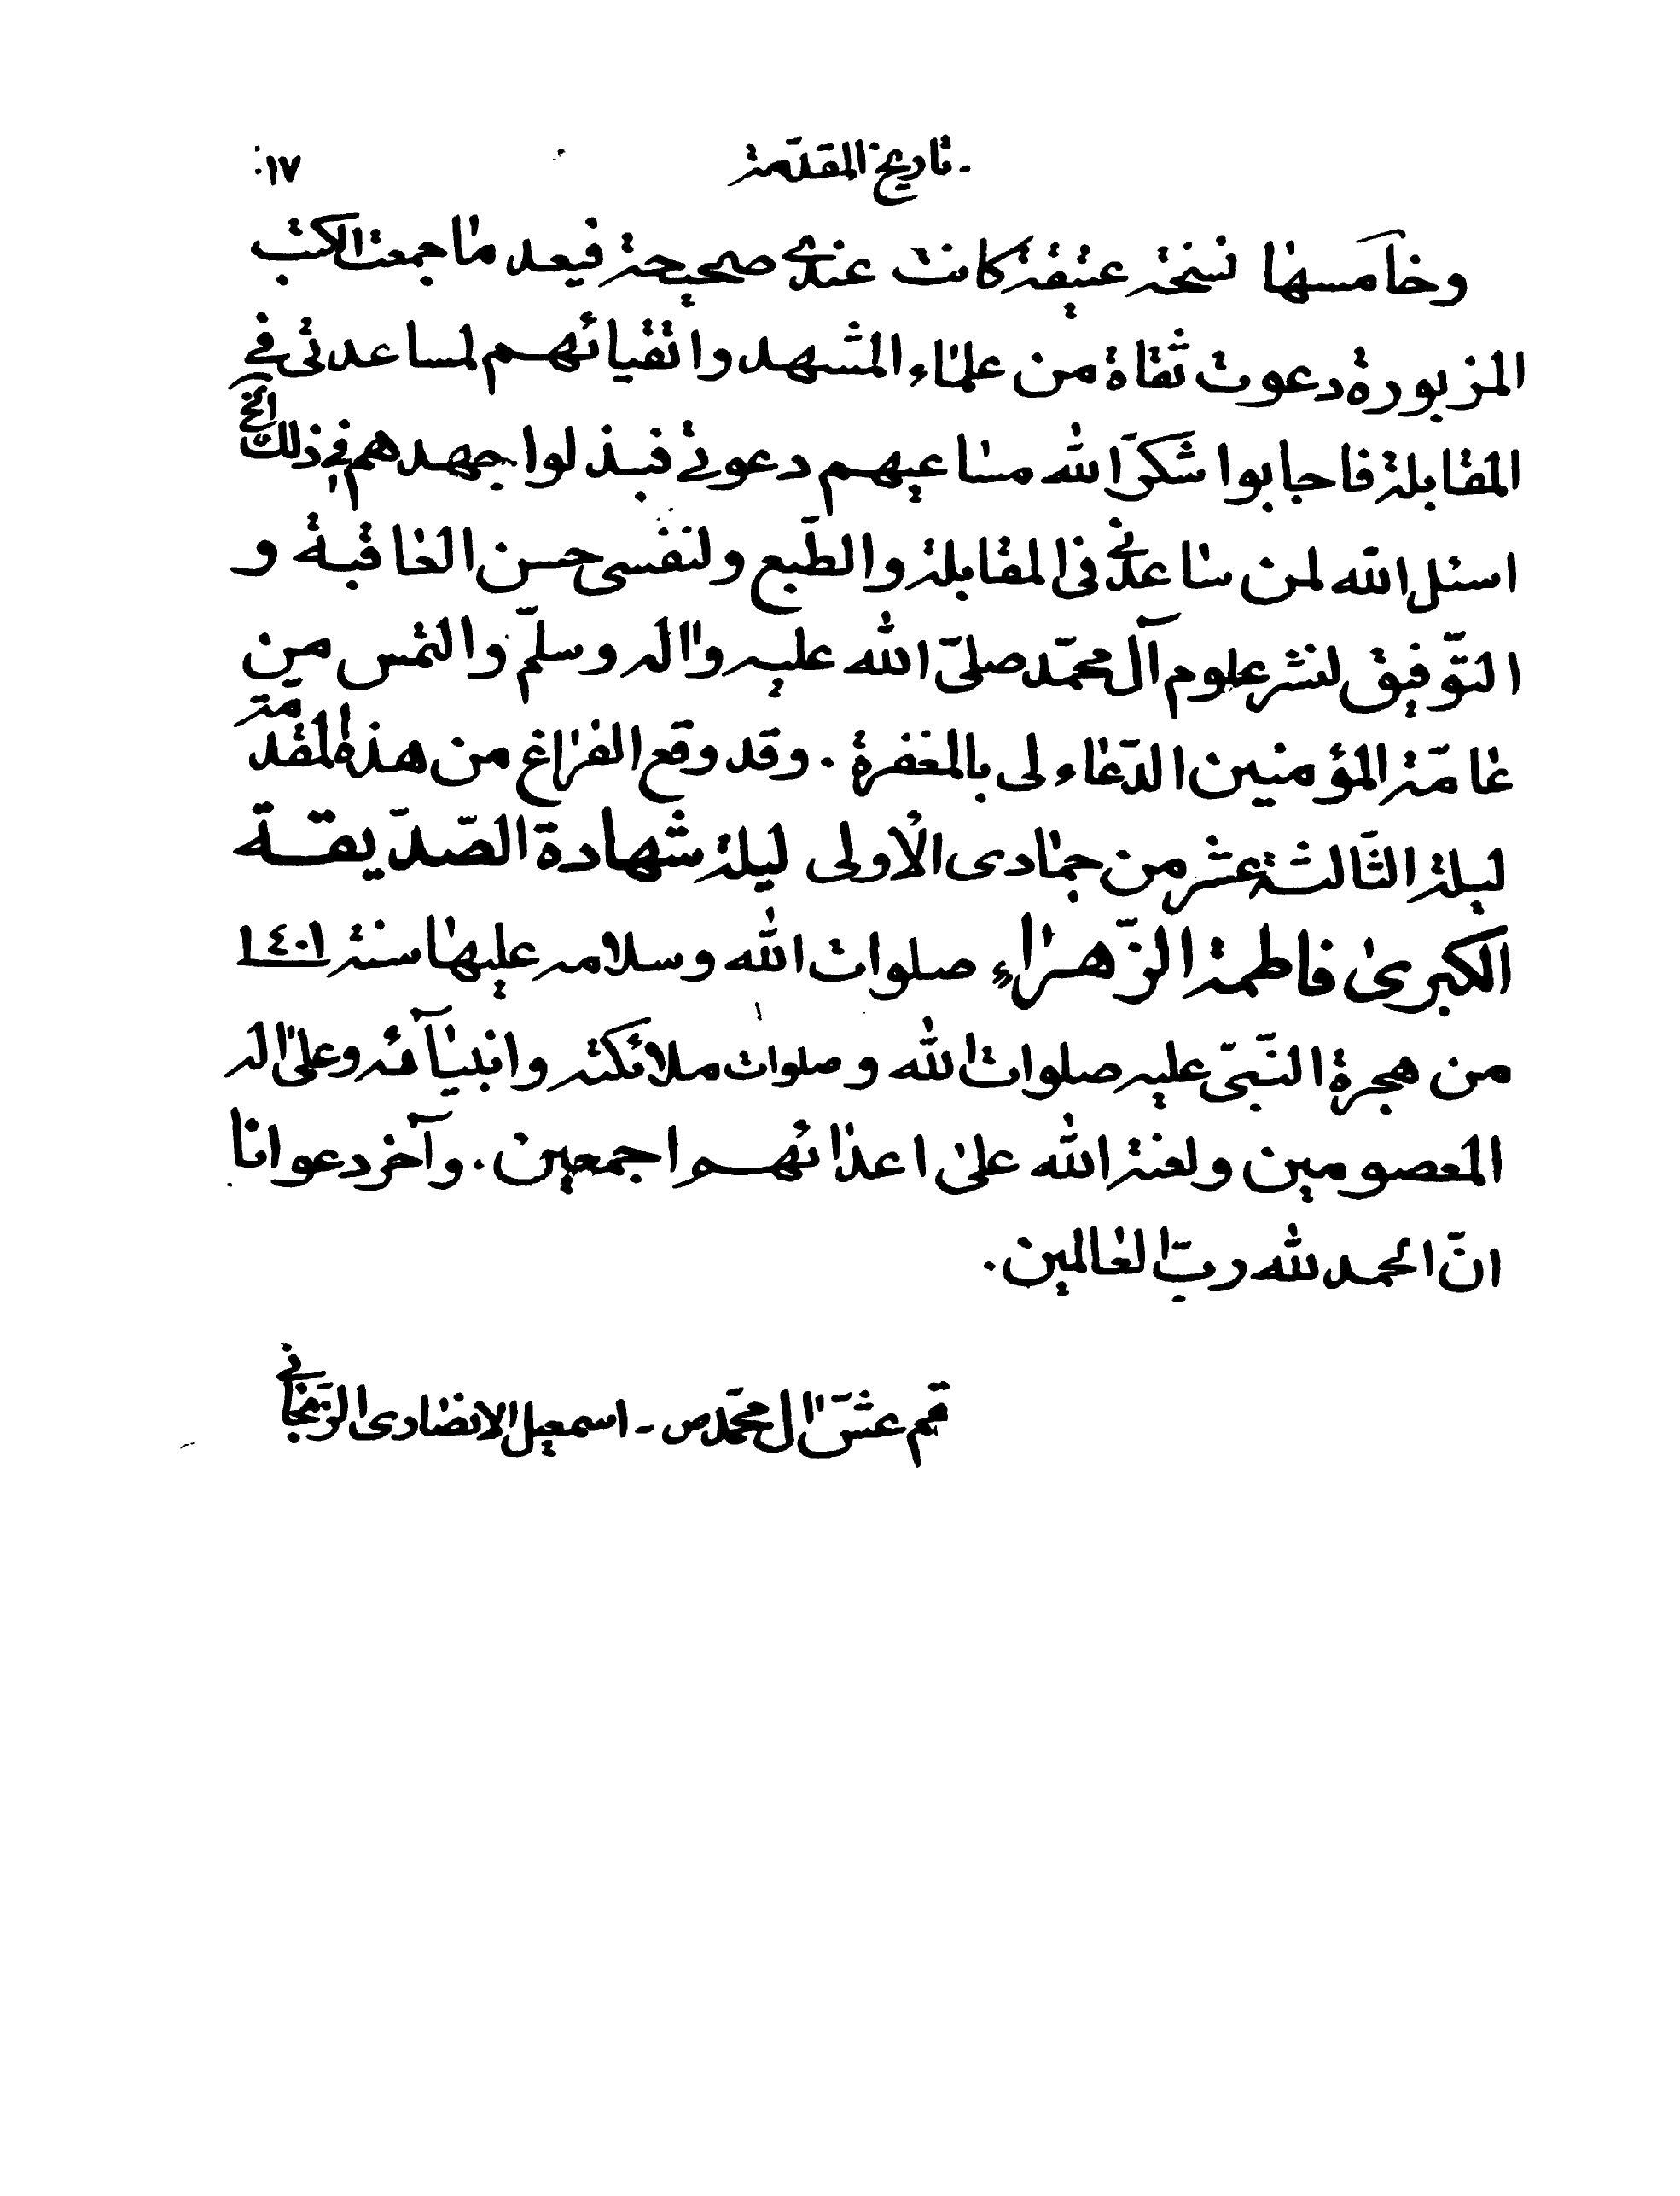 - تاريخ المقدّمة ١٧
وخامسها نسخة عتيقة كانت عندى صحيحة فبعد ما جمعت الكتب
المزبورة دعوت ثقاة من علماء المشهد واتقيائهم لمساعدتى فى
المقابلة فاجابوا شكر الله مساعيهم دعوتى فبذلوا جهدهم فى ذلك الخ
اسئل الله لمن ساعدنى فى المقابلة والطّبع ولنفسى حسن العاقبة و
التوّفيق لنشر علوم آل محمّد صلىّ الله عليه واله وسلمّ والتمس من
عامّة المؤمنين الدّعاء لى بالمغفرة . وقد وقع الفراغ من هذه المقدّمة
ليلة الثّالثة عشر من جمادى الاُولى ليلة شهادة الصّدّيقة
الكبرىٰ فاطمة الزّهراءِ صلوات الله وسلامه عليها سنة ١٤٠١
من هجرة النّبىّ عليه صلوات الله وصلوات ملائكته وانبيآئه وعلىٰ اله
المعصومين ولعنة الله علىٰ اعدائهم اجمعين . وآخر دعوانا
انّ الحمد لله ربّ العالمين .
قم عشّ اٰل محمّد ص - اسمعيل الانصارى الزّنجانى